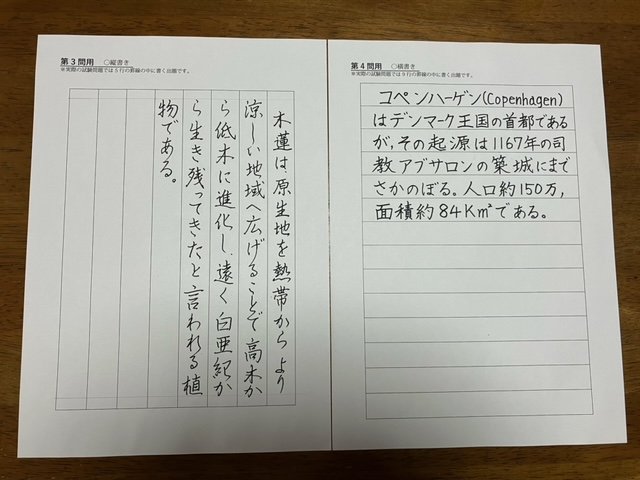 第3問用　○縦書き
※実際の試験問題では5行の罫線の中に書く出題です。
木蓮は、原生地を熱帯からより
涼しい地域へ広げることで高木か
ら低木に進化し、遠く白亜紀か
ら生き残ってきたと言われる植
物である。
第4問用　○横書き
※実際の試験問題では9行の罫線の中に書く出題です。
コペンハーゲン(Copenhagen)
はデンマーク王国の首都である
が，その起源は1167年の司
教アブサロンの築城にまで
さかのぼる。人口約150万，
面積約84K㎡である。